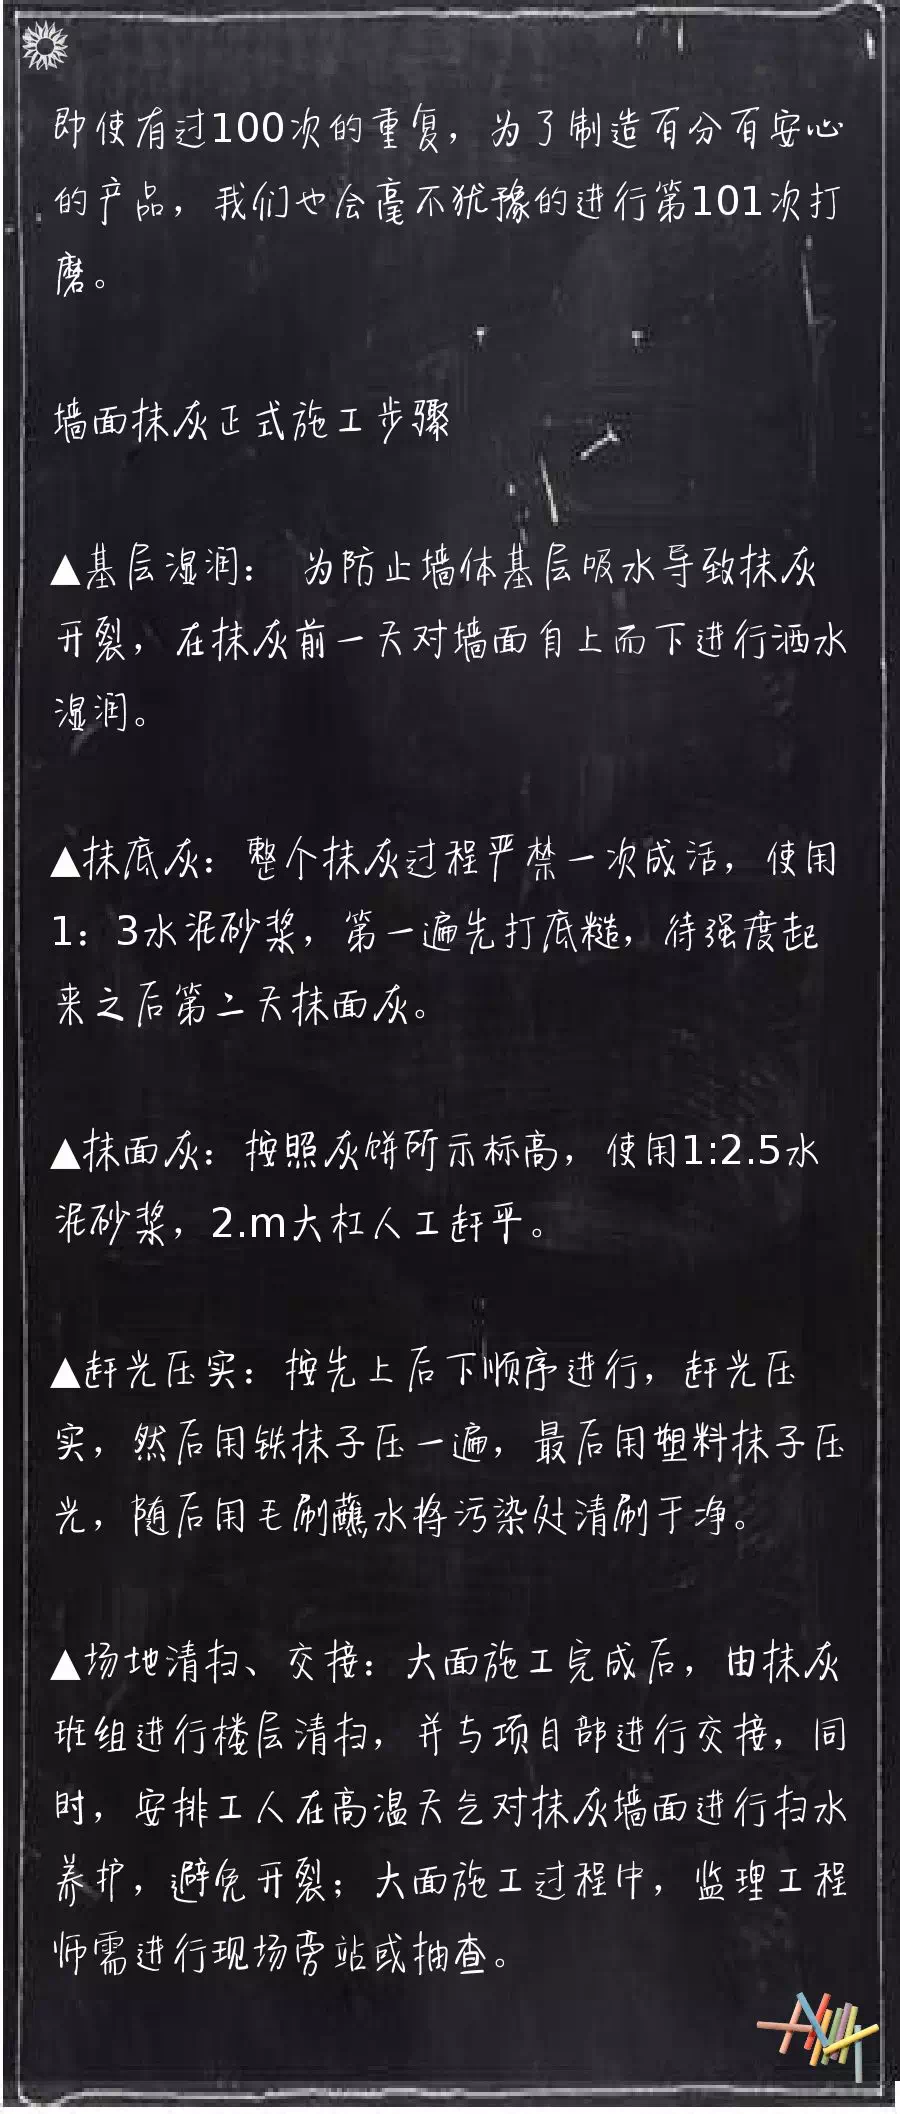 即使有过100次的重复，为了制造百分百安心
的产品，我们也会毫不犹豫的进行第101次打
磨。
墙面抹灰正式施工步骤
▲基层湿润： 为防止墙体基层吸水导致抹灰
开裂，在抹灰前一天对墙面自上而下进行洒水
湿润。
▲抹底灰：整个抹灰过程严禁一次成活，使用
1：3水泥砂浆，第一遍先打底糙，待强度起
来之后第二天抹面灰。
▲抹面灰：按照灰饼所示标高，使用1:2.5水
泥砂浆，2.m大杠人工赶平。
▲赶光压实：按先上后下顺序进行，赶光压
实，然后用铁抹子压一遍，最后用塑料抹子压
光，随后用毛刷蘸水将污染处清刷干净。
▲场地清扫、交接：大面施工完成后，由抹灰
班组进行楼层清扫，并与项目部进行交接，同
时，安排工人在高温天气对抹灰墙面进行扫水
养护，避免开裂；大面施工过程中，监理工程
师需进行现场旁站或抽查。